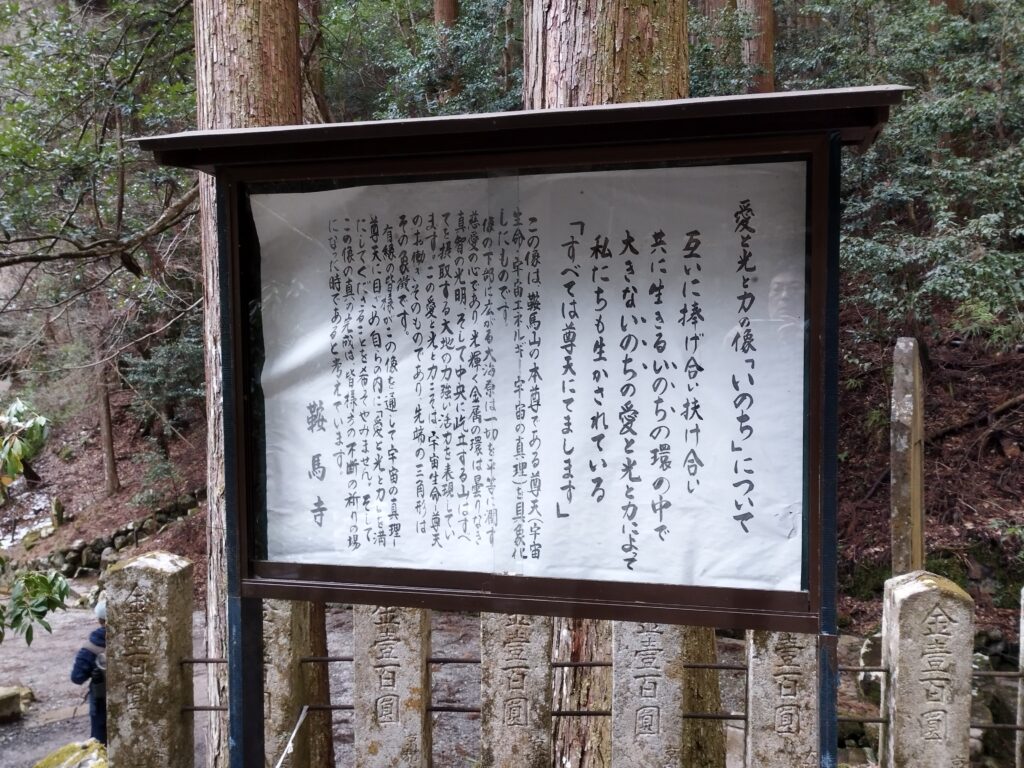 愛と光と力の像「いのち」について
互いに捧げ合い扶け合い
共に生きるいのちの環の中で
大きないのちの愛と光と力によって
私たちも生かされている
「すべては尊天にてまします」
この像は、鞍馬山の本尊である尊天(宇宙
生命・宇宙エネルギー・宇宙の真理)を具象化
したものです。
像の下部に広がる大海原は一切を平等に潤す
慈愛の心であり、光輝く金属の環は曇りなき
真智の光明、そして中央に屹立する山はすべ
てを摂取する大地の力強い活力を表現してい
ます。この愛と光と力こそは、宇宙生命・尊天
のお働きそのものであり、先端の三角形は
その象徴です。
有縁の皆様がこの像を通して、宇宙の真理・
尊天に目ざめ、自らの内に「愛と光と力」を満
たしてくださることを希ってやみません。そして
この像の真の完成は、皆様方の不断の祈りの場
になった時であると考えています。
鞍馬寺
金壹百圓
金壹百圓
金壹百圓
壹百圓
壹百圓
金壹百圓